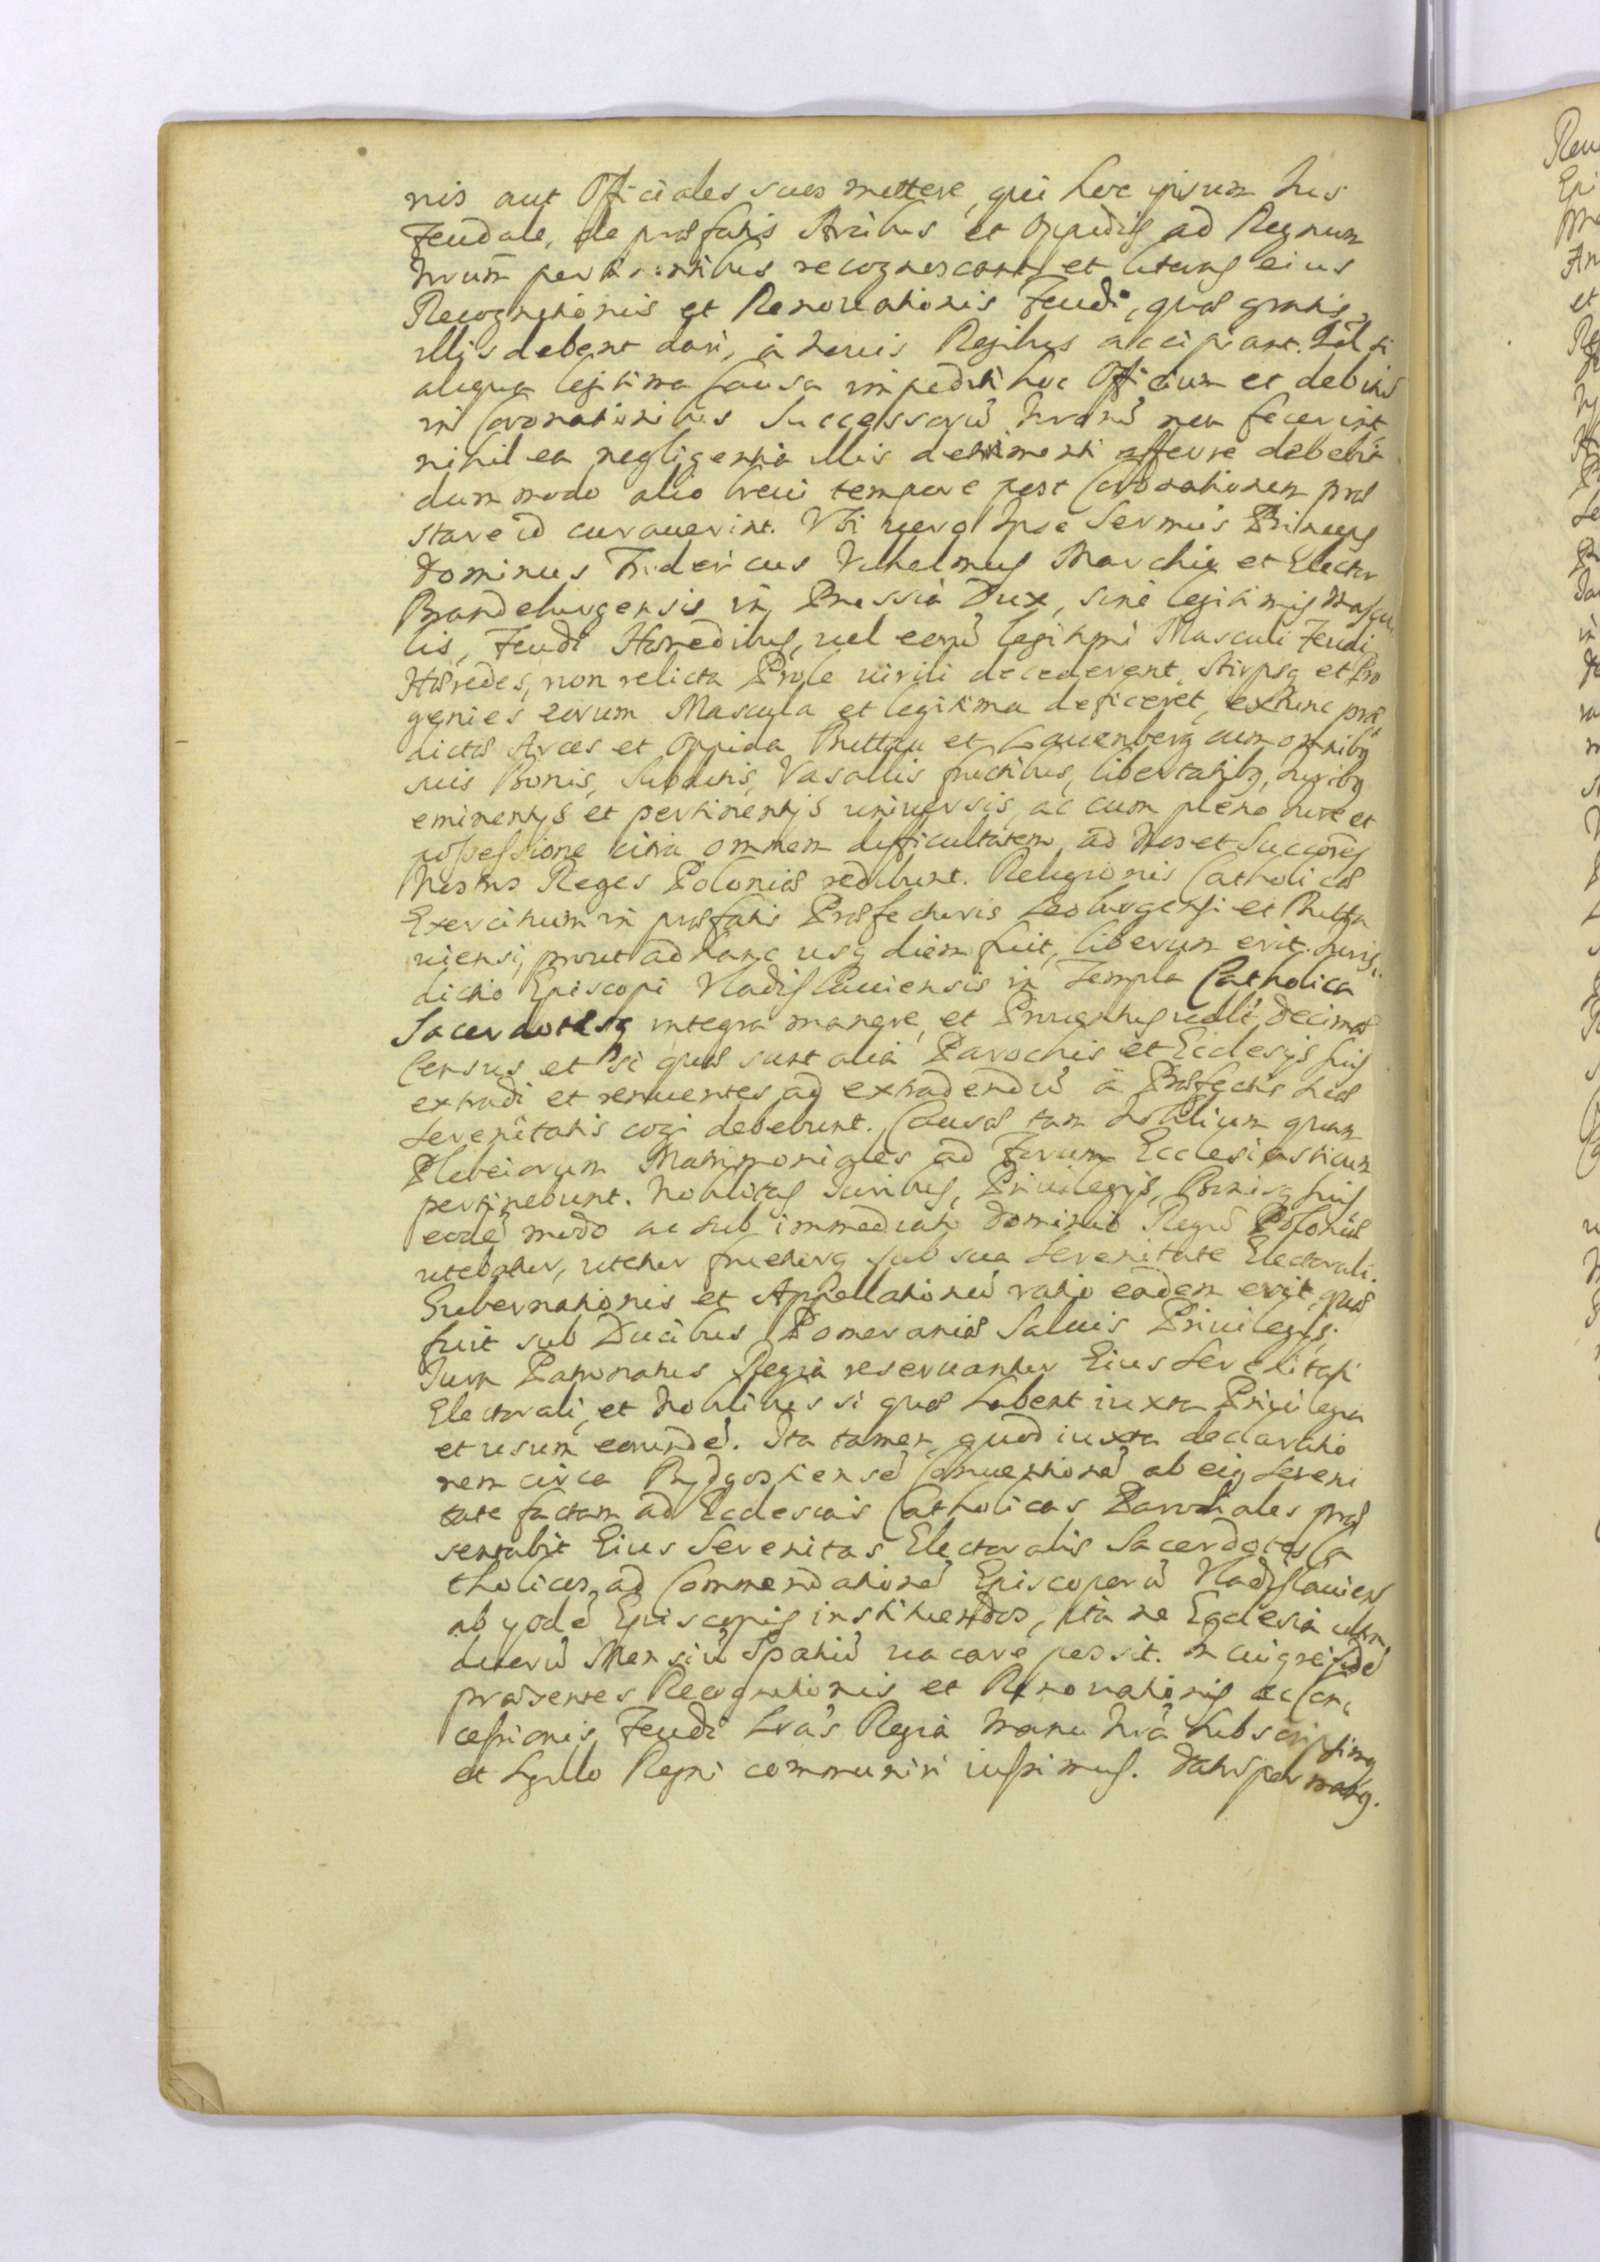 nis aut Officiales suos mittere, qui hoc ipsum Jus
Feudale, de præfatis Arcibus et Oppidis ad Regnum
Nrum pertinentibus recognoscant, et literas eius
Recognitionis et Renouationis Feudi, quæ gratis
illis debent dari, à nouis Regibus accipiant. Id si
aliqua legitima Causa impediti hoc Officium et debitū
in Coronationibus Successorū Nrorū non fecerint
nihil ea negligentia illis detrimenti afferre debebit
dum modo alio breui tempore post Coronationem præ
stare id curauerint. Vbi uero Ipse Sermus Princeps
Dominus Fridericus Vilhelmus Marchio et Elector
Brandeburgensis in Prussia Dux, sine legitimis Mascu
lis, Feudi Hæredibus, uel eorū legitimi Masculi Feudi
Hæredes, non relicta Prole uirili decederent, Stirpsq et Pro
genies eorum Mascula et legitima deficeret, extunc præ
dictæ Arces et Oppida Buttau et Lauenberg cum omnibq
suis Bonis, Subditis, Vasallis fructibus, libertatibq, Juribq
eminentijs et pertinentijs uniuersis, ac cum pleno Jure et
possessione citra omnem difficultatem, ad Nos et Succores
Nostros Reges Poloniæ redibunt. Religionis Catholicæ
Exercitium in præfatis Præfecturis Leoburgensi et Butta
uiensi, prout ad hanc usq diem fuit, liberum erit. Juris
dictio Episcopi Vladislauiensis in Templa Catholica
Sacerdotesq integra manere, et Prouentus uidlt Decimæ
Census et si quæ sunt alia Parochis et Ecclesijs suis
extradi et renuentes ad extradendū à Præfectis suæ
Serenitatis cogi debebunt. Causæ tam Nobilium quam
Plebeiorum Matrimoniales ad Forum Ecclesiasticum
pertinebunt. Nobilitas Juribus, Priuilegijs, Bonisq suis
eodē modo ac sub immediato Dominio Regū Poloniæ
utebatur, utetur frueturq sub sua Serenitate Electorali.
Gubernationis et Appellationū ratio eadem erit, quæ
fuit sub Ducibus Pomeraniæ Saluis Priuilegijs.
Jura Patronatus Regia reseruantur Eius Serenitati
Electorali, et Nobilibus si quæ habent iuxta Priuilegia
et usum eorundē. Ita tamen, quod iuxta declaratio
nem circa Bydgostiensē Conuentionē ab eiq Sereni
tate factam ad Ecclesias Catholicas Parochiales præ
sentabit Eius Serenitas Electoralis Sacerdotes Ca
tholicos, ad Commendationē Episcoporū Vladislauiens
ab ysdē Episcopis instituendos, ita ne Ecclesia ultra
duorū Mensiū Spatiū uacare possit. In cuiq rei fidē
præsentes Recognitionis et Renouationis ac Con
cessionis Feudi Lrās Regia Manu Nrā Subscripsimq
et Sigillo Regni communiri iussimus. Datis per manq.